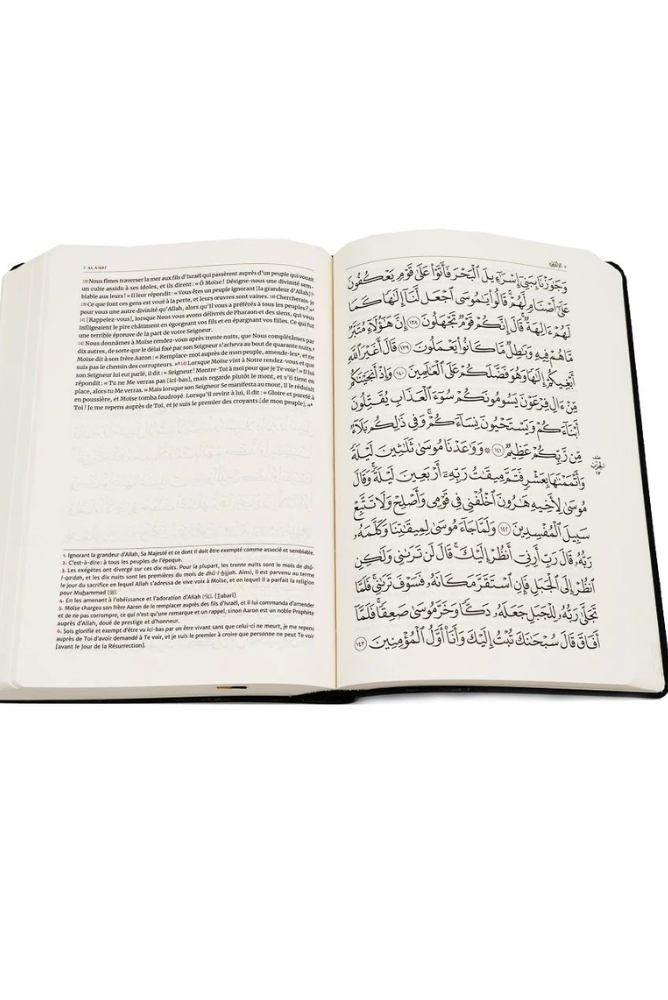 7 AL-A'RÂF
[138] Nous fîmes traverser la mer aux fils d'Israël qui passèrent auprès d'un peuple qui vouait
un culte assidu à ses idoles, et ils dirent : « Ô Moïse ! Désigne-nous une divinité sem-
blable aux leurs ! » Il leur répondit : « Vous êtes un peuple ignorant [la grandeur d'Allah]¹
[139] Ce que font ces gens est voué à la perte, et leurs œuvres sont vaines. [140] Chercherais-je
pour vous une autre divinité qu'Allah, alors qu'Il vous a préférés à tous les peuples² ? »
[141] [Rappelez-vous], lorsque Nous vous avons délivrés de Pharaon et des siens, qui vous
infligeaient le pire châtiment en égorgeant vos fils et en épargnant vos filles. Ce qui fut
une terrible épreuve de la part de votre Seigneur.
[142] Nous donnâmes à Moïse rendez-vous après trente nuits, que Nous complétâmes par
dix autres, de sorte que le délai fixé par son Seigneur s'acheva au bout de quarante nuits³.
Moïse dit à son frère Aaron : « Remplace-moi auprès de mon peuple, amende-les⁴, et ne
suis pas le chemin des corrupteurs. »⁵ [143] Lorsque Moïse vint à Notre rendez-vous et que
son Seigneur lui eut parlé, il dit : « Seigneur ! Montre-Toi à moi pour que je Te voie ! » Il lui
répondit : « Tu ne Me verras pas [ici-bas], mais regarde plutôt le mont, et s'il tient en
place, alors tu Me verras. » Mais lorsque son Seigneur Se manifesta au mont, Il le réduisit
en poussière, et Moïse tomba foudroyé. Lorsqu'il revint à lui, il dit : « Gloire et pureté à
Toi ! Je me repens auprès de Toi, et je suis le premier des croyants [de mon peuple]. »⁶
1. Ignorant la grandeur d'Allah, Sa Majesté et ce dont il doit être exempté comme associé et semblable.
2. C'est-à-dire : à tous les peuples de l'époque.
3. Les exégètes ont divergé sur ces dix nuits. Pour la plupart, les trente nuits sont le mois de dhû-
l-qa'dah, et les dix nuits sont les premières du mois de dhû-l-ḥijjah. Ainsi, il est parvenu au terme
le jour du sacrifice en lequel Allah s'adressa de vive voix à Moïse, et en lequel il a parfait la religion
pour Muḥammad (ﷺ).
4. En les amenant à l'obéissance et l'adoration d'Allah (ﷻ). [Ṭabarî]
5. Moïse chargea son frère Aaron de le remplacer auprès des fils d'Israël, et il lui commanda d'amender
et de ne pas corrompre, ce qui n'est qu'une remarque et un rappel, sinon Aaron est un noble Prophète
auprès d'Allah, doué de prestige et d'honneur.
6. Sois glorifié et exempté d'être vu ici-bas par un être vivant sans que celui-ci ne meurt, je me repens
auprès de Toi d'avoir demandé à Te voir, et je suis le premier à croire que personne ne peut Te voir
[avant le Jour de la Résurrection].
وَجَٰوَزۡنَا بِبَنِيٓ إِسۡرَٰٓءِيلَ ٱلۡبَحۡرَ فَأَتَوۡاْ عَلَىٰ قَوۡمٖ يَعۡكُفُونَ
عَلَىٰٓ أَصۡنَامٖ لَّهُمۡۚ قَالُواْ يَٰمُوسَى ٱجۡعَل لَّنَآ إِلَٰهٗا كَمَا
لَهُمۡ ءَالِهَةٞۚ قَالَ إِنَّكُمۡ قَوۡمٞ تَجۡهَلُونَ ١٣٨ إِنَّ هَٰٓؤُلَآءِ مُتَبَّرٞ
مَّا هُمۡ فِيهِ وَبَٰطِلٞ مَّا كَانُواْ يَعۡمَلُونَ ١٣٩ قَالَ أَغَيۡرَ ٱللَّهِ
أَبۡغِيكُمۡ إِلَٰهٗا وَهُوَ فَضَّلَكُمۡ عَلَى ٱلۡعَٰلَمِينَ ١٤٠ وَإِذۡ أَنجَيۡنَٰكُم
مِّنۡ ءَالِ فِرۡعَوۡنَ يَسُومُونَكُمۡ سُوٓءَ ٱلۡعَذَابِ يُقَتِّلُونَ
أَبۡنَآءَكُمۡ وَيَسۡتَحۡيُونَ نِسَآءَكُمۡۚ وَفِي ذَٰلِكُم بَلَآءٞ
مِّن رَّبِّكُمۡ عَظِيمٞ ١٤١ ۞ وَوَٰعَدۡنَا مُوسَىٰ ثَلَٰثِينَ لَيۡلَةٗ
وَأَتۡمَمۡنَٰهَا بِعَشۡرٖ فَتَمَّ مِيقَٰتُ رَبِّهِۦٓ أَرۡبَعِينَ لَيۡلَةٗۚ وَقَالَ
مُوسَىٰ لِأَخِيهِ هَٰرُونَ ٱخۡلُفۡنِي فِي قَوۡمِي وَأَصۡلِحۡ وَلَا تَتَّبِعۡ
سَبِيلَ ٱلۡمُفۡسِدِينَ ١٤٢ وَلَمَّا جَآءَ مُوسَىٰ لِمِيقَٰتِنَا وَكَلَّمَهُۥ
رَبُّهُۥ قَالَ رَبِّ أَرِنِيٓ أَنظُرۡ إِلَيۡكَۚ قَالَ لَن تَرَىٰنِي وَلَٰكِنِ
ٱنظُرۡ إِلَى ٱلۡجَبَلِ فَإِنِ ٱسۡتَقَرَّ مَكَانَهُۥ فَسَوۡفَ تَرَىٰنِيۚ فَلَمَّا
تَجَلَّىٰ رَبُّهُۥ لِلۡجَبَلِ جَعَلَهُۥ دَكّٗا وَخَرَّ مُوسَىٰ صَعِقٗاۚ فَلَمَّآ
أَفَاقَ قَالَ سُبۡحَٰنَكَ تُبۡتُ إِلَيۡكَ وَأَنَا۠ أَوَّلُ ٱلۡمُؤۡمِنِينَ ١٤٣